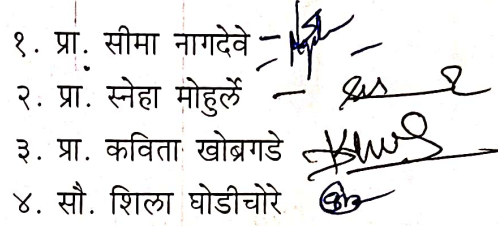 १. प्रा. सीमा नागदेवे -
२. प्रा. स्नेहा मोहुर्ले -
३. प्रा. कविता खोब्रगडे
४. सौ. शिला घोडीचोरे